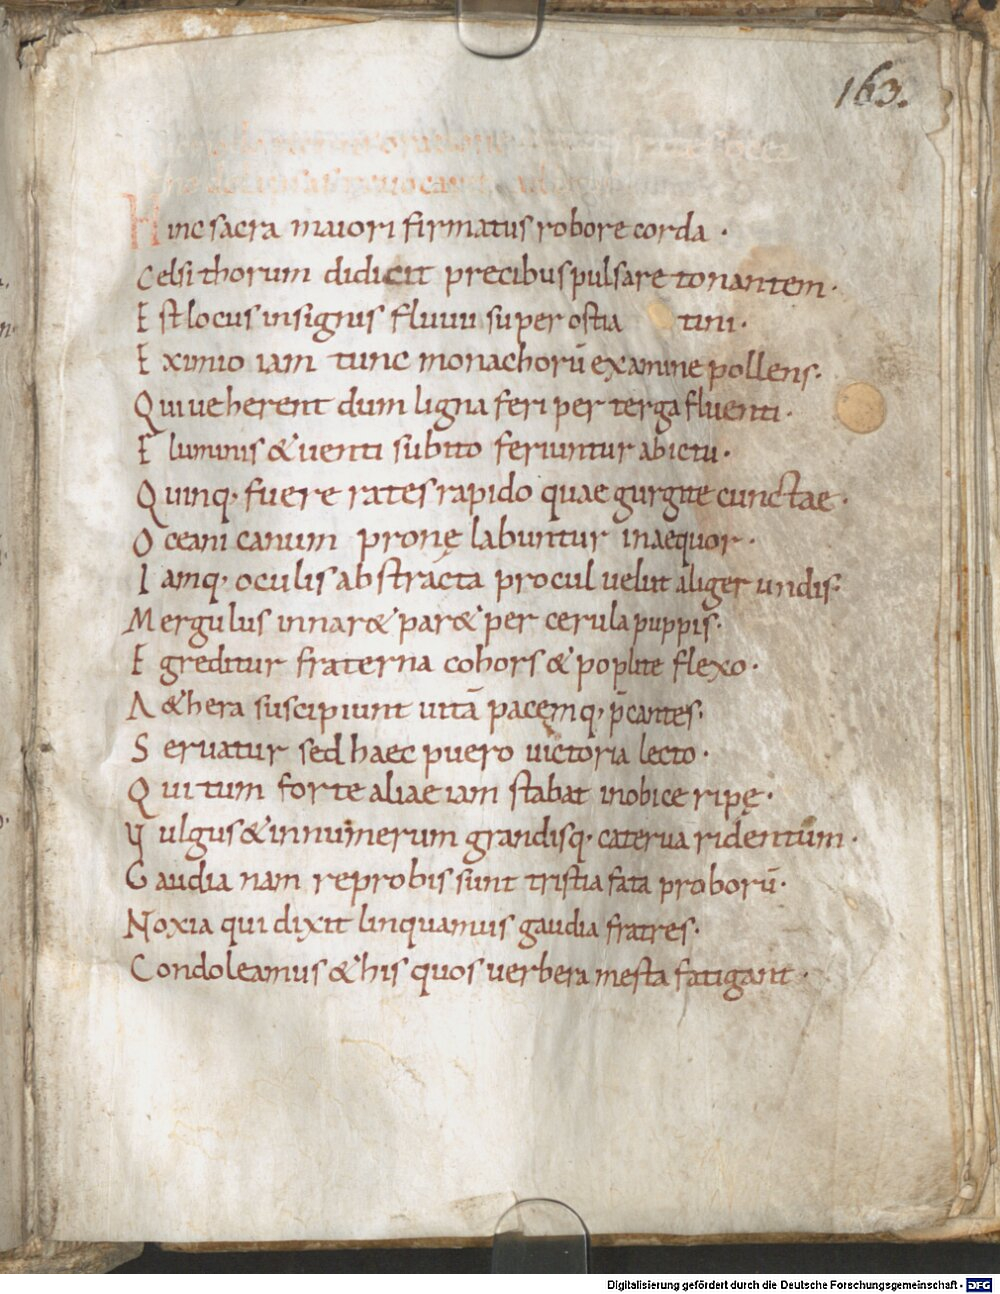 163.
Hinc sacra maiori firmatus robore corda ·
Celsithorum didicit precibus pulsare tonantem ·
Est locus insignis fluuii super ostia tini ·
Eximio iam tunc monachorū examine pollens ·
Qui ueherent dum ligna feri per terga fluenti ·
E luminis & uenti subito feriuntur ab ictu ·
Quinq· fuere rates rapido quae gurgite cunctae ·
Oceani canum pronę labuntur in aequor ·
Iamq· oculis abstracta procul uelut aliger undis ·
Mergulus innar& par& per cerula puppis ·
Egreditur fraterna cohors & poplite flexo ·
A&hera suscipiunt uitā pacemq· p̄cantes ·
Seruatur sed haec puero uictoria lecto ·
Qui tum forte aliae iam stabat in obice ripę ·
Vulgus & innumerum grandisq· caterua ridentum ·
Gaudia nam reprobis sunt tristia fata proborū ·
Noxia qui dixit linquamus gaudia fratres ·
Condoleamus & his quos uerbera mesta fatigant ·
Digitalisierung gefördert durch die Deutsche Forschungsgemeinschaft - DFG